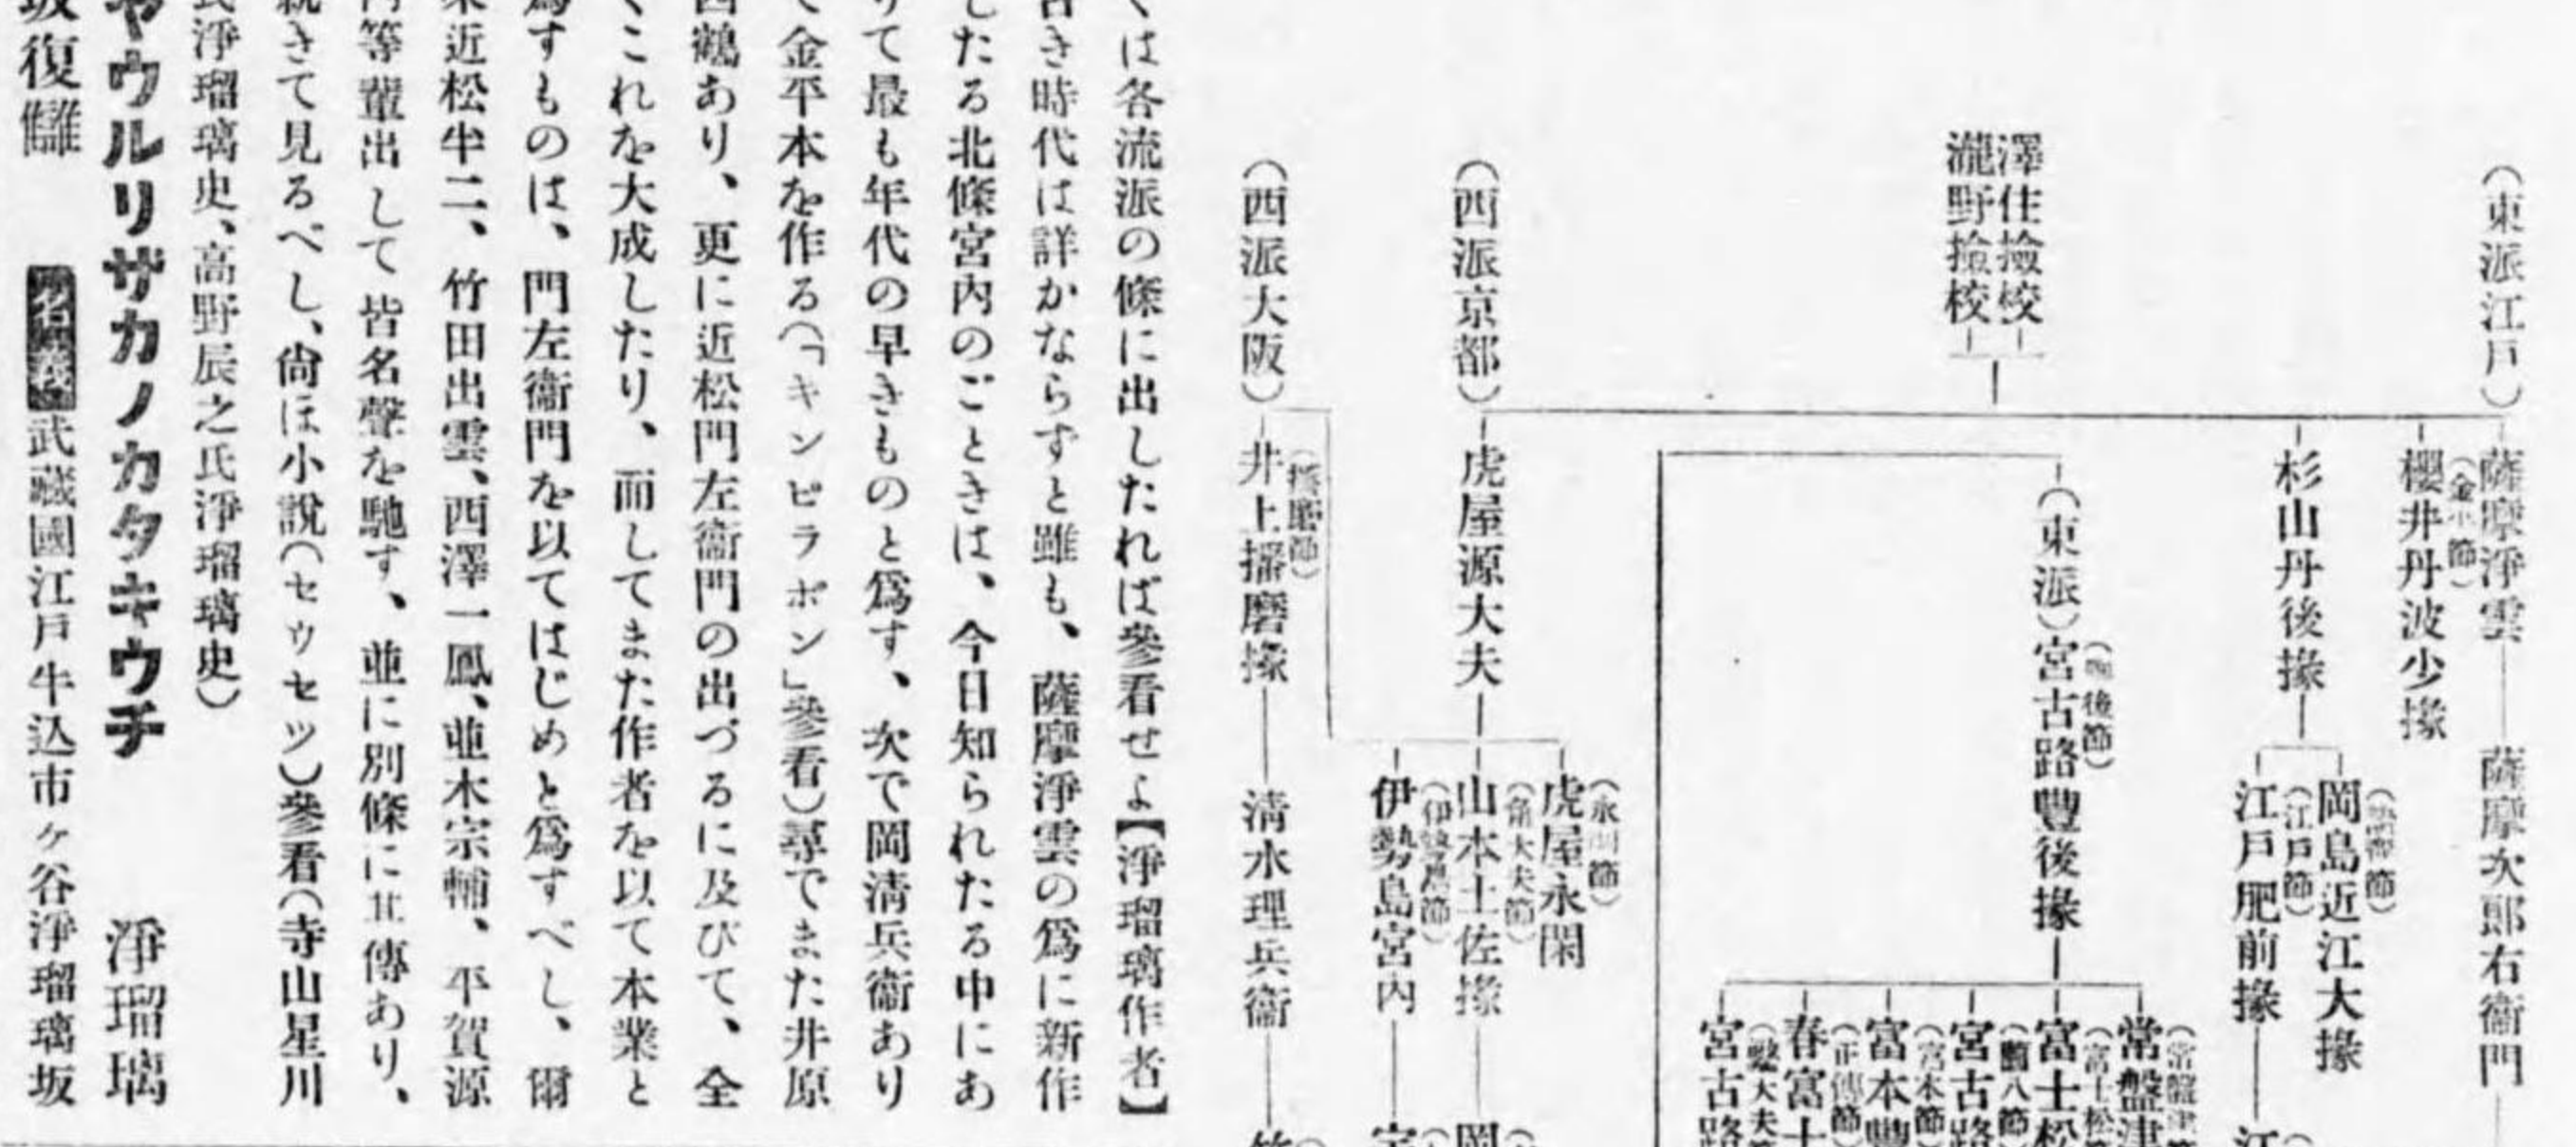 （東派江戸）
薩摩淨雲
薩摩次郎右衞門
櫻井丹波少掾
（金平節）
杉山丹後掾
岡島近江大掾
江戸肥前掾
（江戸節）
澤住撿校
瀧野撿校
（東派）宮古路豐後掾
後節）
常盤津
（常盤津
富士松
（富士松
宮古路
八節）
富本豐
（富本節）
春富士
（正傳節）
宮古路
太夫節
（西派京都）
虎屋源大夫
虎屋永閑
（永閑節）
山本土佐掾
（角太夫節）
伊勢島宮内
（伊勢島節）
（西派大阪）
井上播磨掾
（播磨節）
清水理兵衞
くは各流派の條に出したれば參看せよ【淨瑠璃作者】
古き時代は詳かならずと雖も、薩摩淨雲の爲に新作
したる北條宮内のごときは、今日知られたる中にあ
りて最も年代の早きものと爲す、次で岡清兵衞あり
て金平本を作る（「キンピラボン」參看）尋でまた井原
西鶴あり、更に近松門左衞門の出づるに及びて、全
くこれを大成したり、而してまた作者を以て本業と
爲すものは、門左衞門を以てはじめと爲すべし、爾
來近松半二、竹田出雲、西澤一鳳、並木宗輔、平賀源
内等輩出して皆名聲を馳す、並に別條に其傳あり、
就きて見るべし、尙ほ小說（セウセツ）參看（寺山星川
氏淨瑠璃史、高野辰之氏淨瑠璃史）
ヤウルリザカノカタキウチ　淨瑠璃
坂復讎　名義武藏國江戸牛込市ケ谷淨瑠璃坂